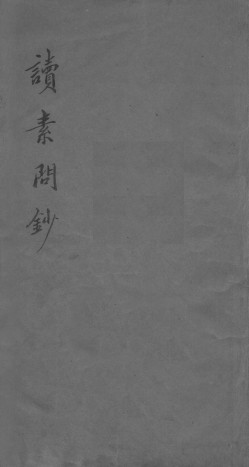 讀素問鈔